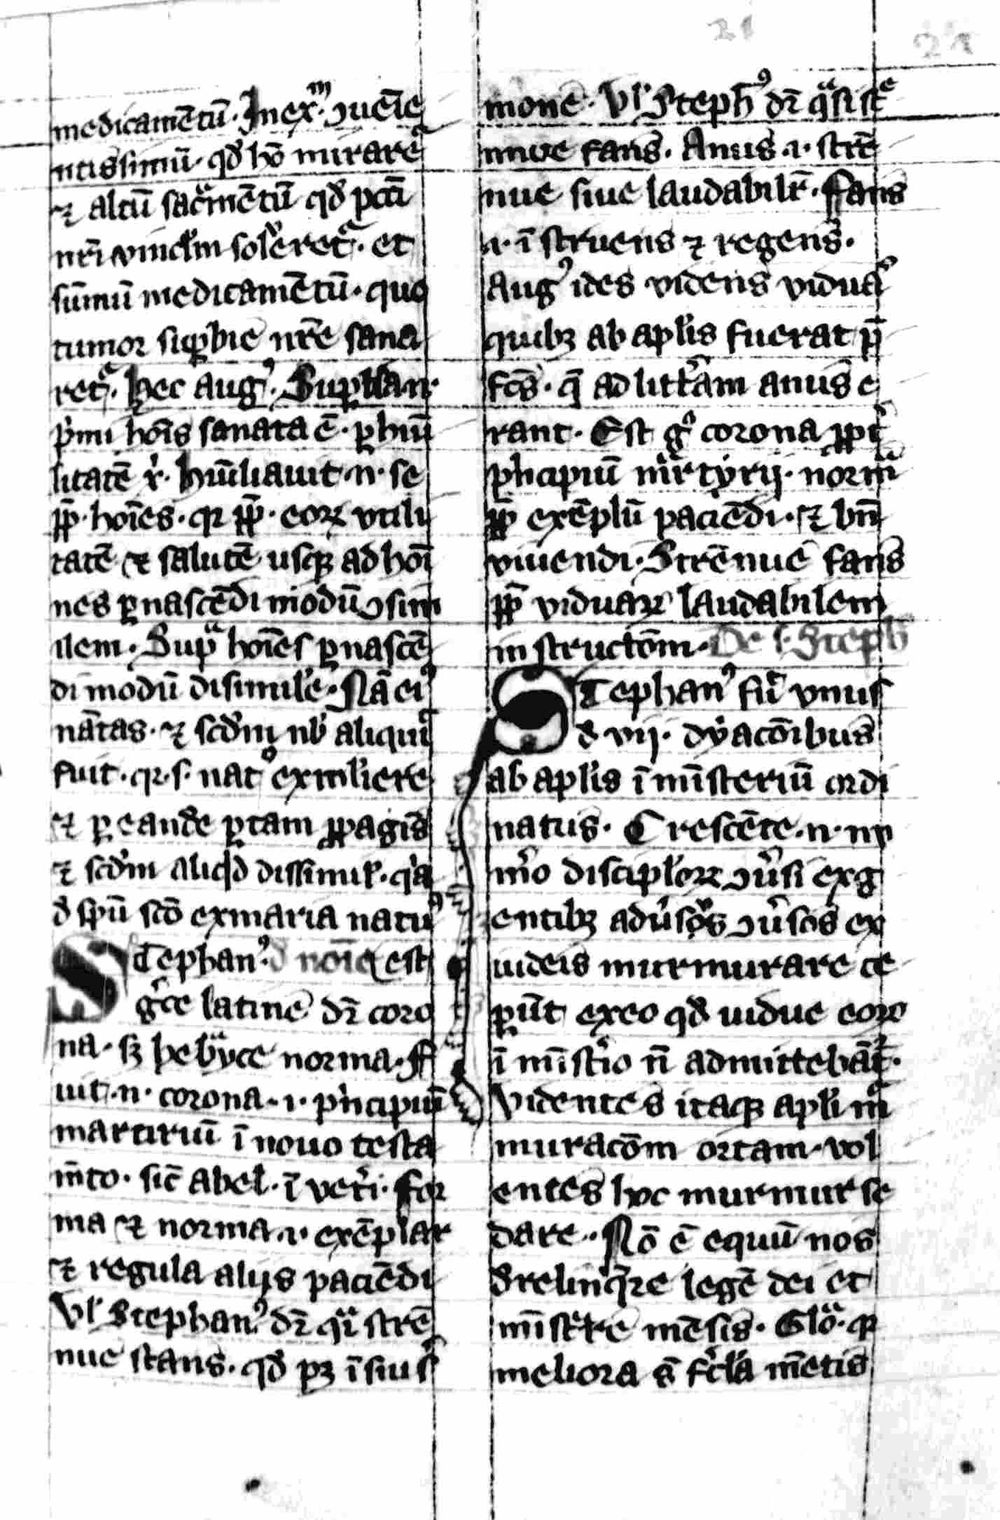 21 21
medicamētū. Inexm. ↄueīe
ntissimū. qd hō mirareť
⁊ altū sacramētū qd pctī
nrī vinclm solueret. et
sūmū medicamētū. quo
tumor supbie nrē sana
ret. hec aug. Supban
pmi hoīs sanata ē. p hiu
litatē x. hūiliauit .n. se
pp. hoīes. qr pp. eorꝝ vtili
tatē ⁊ salutē usqꝫ ad hoī
nes p nascēdi modū ↄsim
ilem. Supa hoīes p nascē
di modū disimile. Nā ei
nātas. ⁊ scdm nb aliqui
fuit. qr .s. nat ex muliere
⁊ p eandē ptam ppagīs
⁊ scdm aliqd dissimil. qa
d spū scō ex maria natu
Stephan. d noīe est
gce latine dr coro
na. sꝫ hebyce norma. F
uit .n. corona .i. pncipiū
martiriū ī novo testa
mto. sic abel. ī veti. for
ma ⁊ norma .i. exēplar
⁊ regula alijs paciēdi
Vl Stephan dr qi strē
nue stans. qd pꝫ ī siu s
mone. Vl Steph dr qasi stre
nnue fans. Anus .i. strē
nue siue laudabilr. Fans
.i. īstruens ⁊ regens.
Aug ides videns viduas
quibꝫ ab aplis fuerat p
fcs. q ad litteram anus e
rant. Est g corona ppt
pncipiū martyrij. norma
pp exēplū paciēdi. ⁊ bn
viuendi. Strēnue fans
pp viduarꝝ laudabilem
instructom. De s. Steph
Stephan fuit vnus
d vij. dyacoībus
ab aplis ī mīsteriū ordi
natus. Crescēte .n. nu
mo disciplorꝝ ↄusi ex g
entibꝫ adusos ↄusos ex
iudeis murmurare ce
put ex eo qd uidue eorꝝ
ī mistio n admittebāt.
Videntes itaqꝫ apli mur
muracōm ortam. vol
entes hoc murmur se
dare. Nō ē equū nos
drelinqre legē dei et
mīstrare mēsis. Glo. qr
meliora s fcla mētis